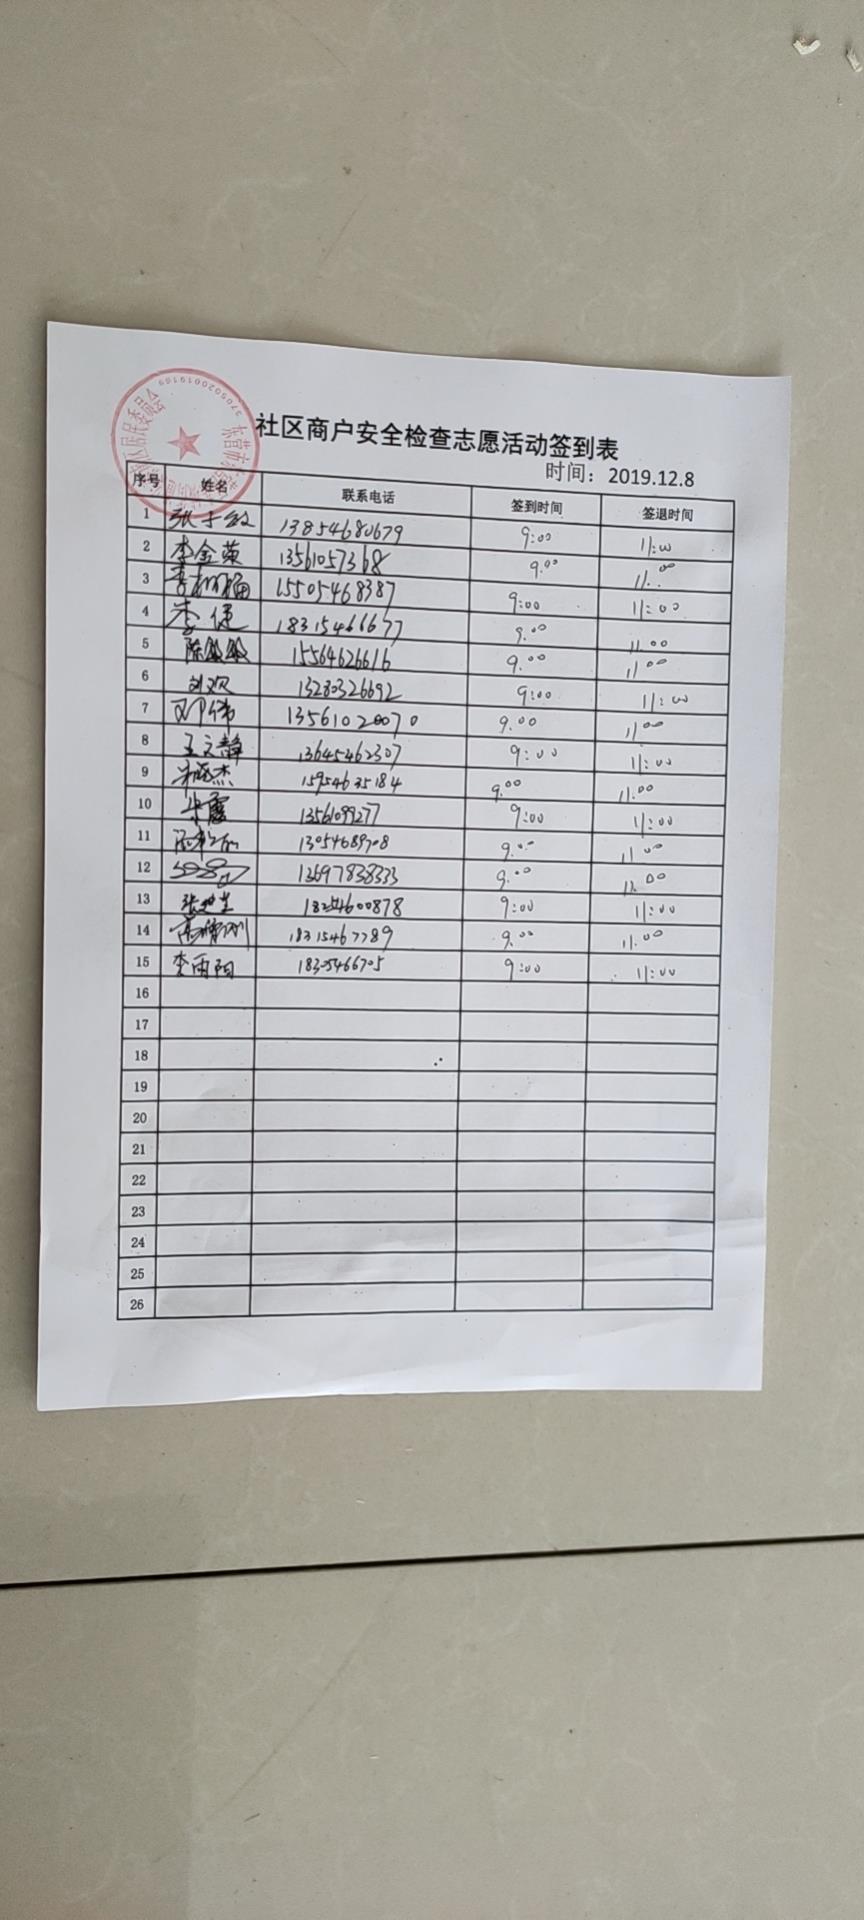 社区商户安全检查志愿活动签到表
时间：2019.12.8
序号 姓名 联系电话 签到时间 签退时间
1 13854680679 9:00 11:00
2 李金荣 13561057368 9:00 11:00
3 15505468387 9:00 11:00
4 李健 18315466677 9:00 11:00
5 陈敏敏 15564626616 9:00 11:00
6 刘欢 13280326692 9:00 11:00
7 邓伟 13561020070 9:00 11:00
8 王文静 13645462307 9:00 11:00
9 15954635184 9:00 11:00
10 朱霞 13561099277 9:00 11:00
11 13054689708 9:00 11:00
12 13697838333 9:00 11:00
13 18254600878 9:00 11:00
14 18315467789 9:00 11:00
15 李雨阳 9:00 11:00
16
17
18
19
20
21
22
23
24
25
26